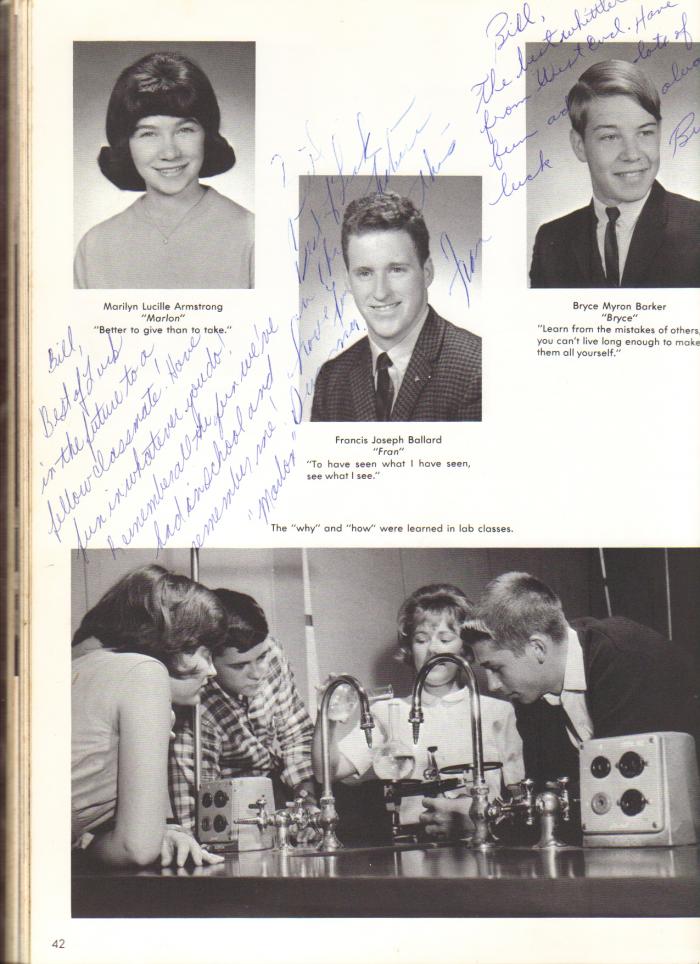 Bill,
The best whittler
from West End. Have
lots of
fun and always
luck
Best luck
in the future
this
Fran
Marilyn Lucille Armstrong
"Marlon"
"Better to give than to take."
Bryce Myron Barker
"Bryce"
"Learn from the mistakes of others,
you can't live long enough to make
them all yourself."
Bill,
Best of Luck
in the future to a
fellow classmate! Have
fun in whatever you do!
Remember all the fun we've
had in school and
remember me!
"Marlon"
Francis Joseph Ballard
"Fran"
"To have seen what I have seen,
see what I see."
The "why" and "how" were learned in lab classes.
42